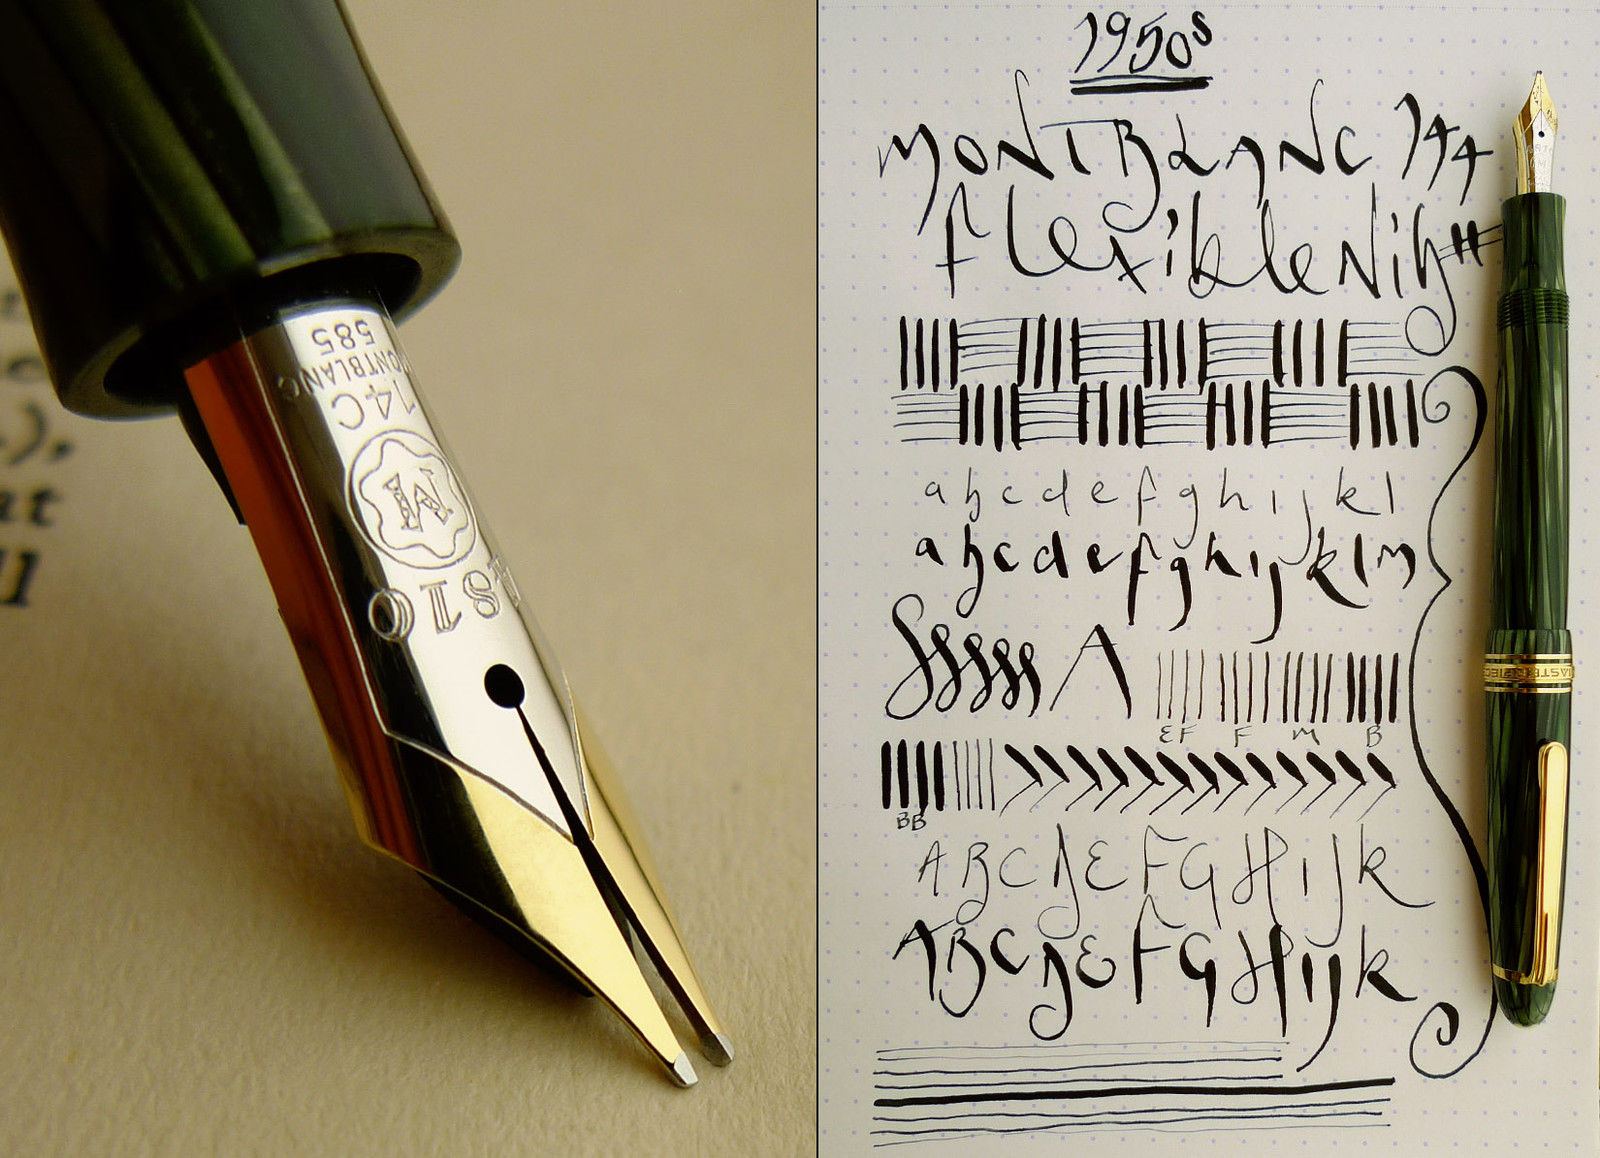 585
MONTBLANC
14C
M
4810
at
1950s
MONTBLANC 144
flexible Nib
abcdefghijkl
abcdefghijklm
A
EF F M B
BB
ABCDEFGHIJK
ABCDEFGHIJK